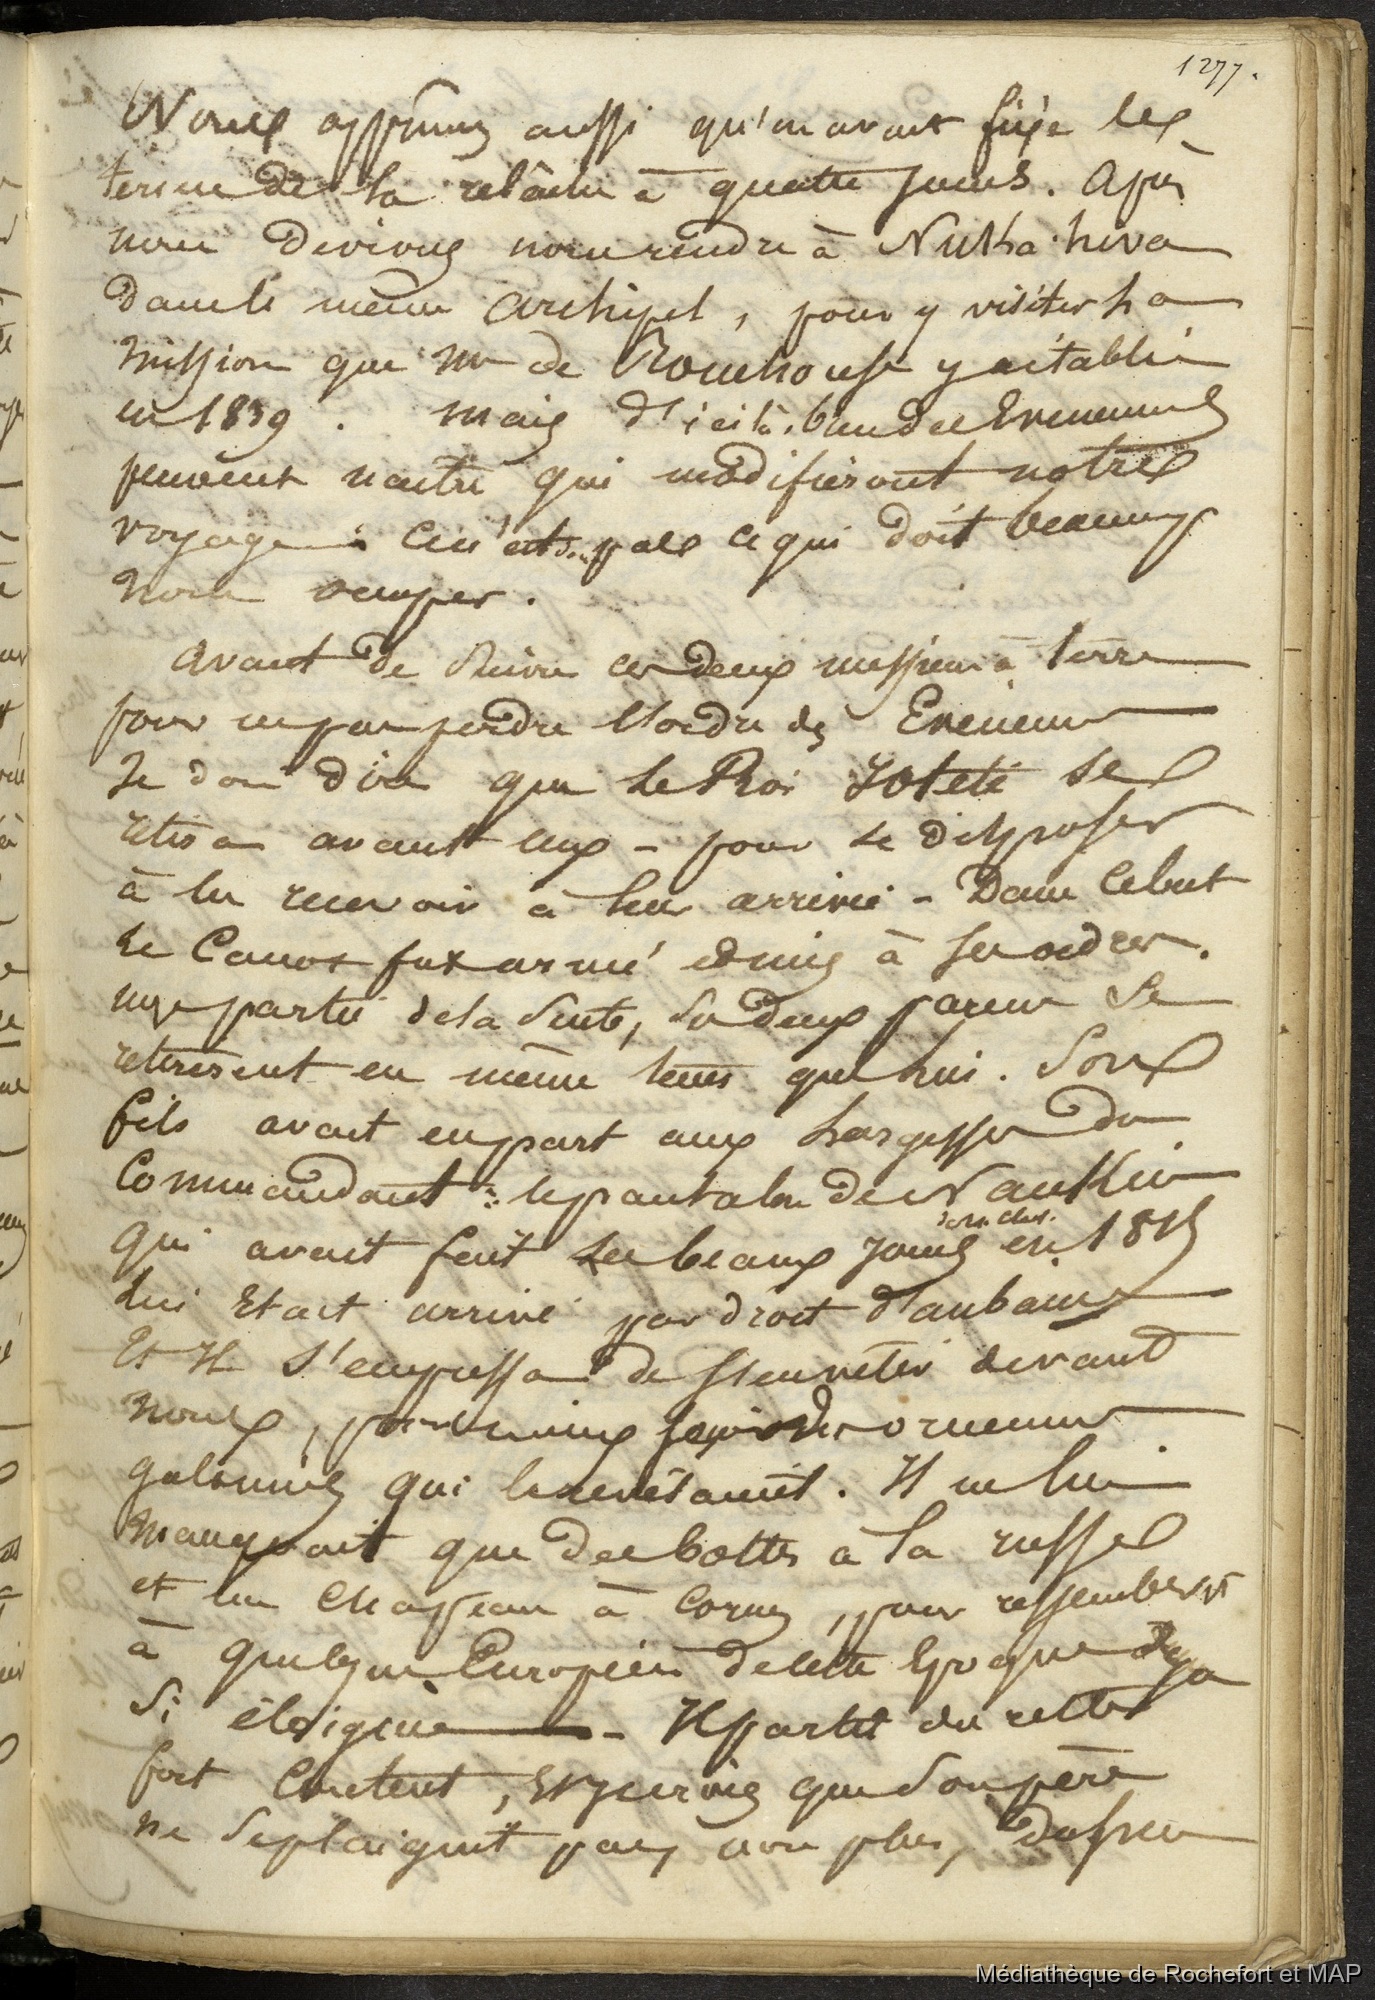 1277.
Nous apprîmes aussi qu'on avait fixé les
terme de la relâche à quatre jours. Après
nous devions nous rendre à Nukha-hiva
dans le même archipel, pour y visiter la
mission que Mr de Rouchouse y a établie
en 1839. Mais d'ici là, bien des Evenements
peuvent naitre qui modifieront notre
voyage. Ce n'est donc pas ce qui doit beaucoup
nous occuper.
Avant de suivre ces deux messieurs à terre
pour ne pas perdre l'ordre des Evenemens
Je dois dire que le Roi Iotété se
retira avant eux - pour se disposer
à les recevoir à leur arrivée - Dans ce but
le Canot fut armé et mis à ses ordres.
une partie de la suite, les deux parens se
retirèrent en même tems que lui. Son
fils avait eu part aux largesses du
Commandant : le pantalon de Nankin
qui avait fait les beaux jours en 1815
lui Etait arrivé par droit d'aubaine
Et Il s'empressa de s'en vêtir devant
nous, pour mieux ornemens
galonnés qui le revêtaient. Il ne lui
manquait que des bottes à la russe
et un chapeau à cornes, pour ressembler
à quelque Européen de cette Epoque deja
si éloignée - Il partit du reste
fort content, Et je crois que son père
ne se plaignit pas non plus,
Médiathèque de Rochefort et MAP